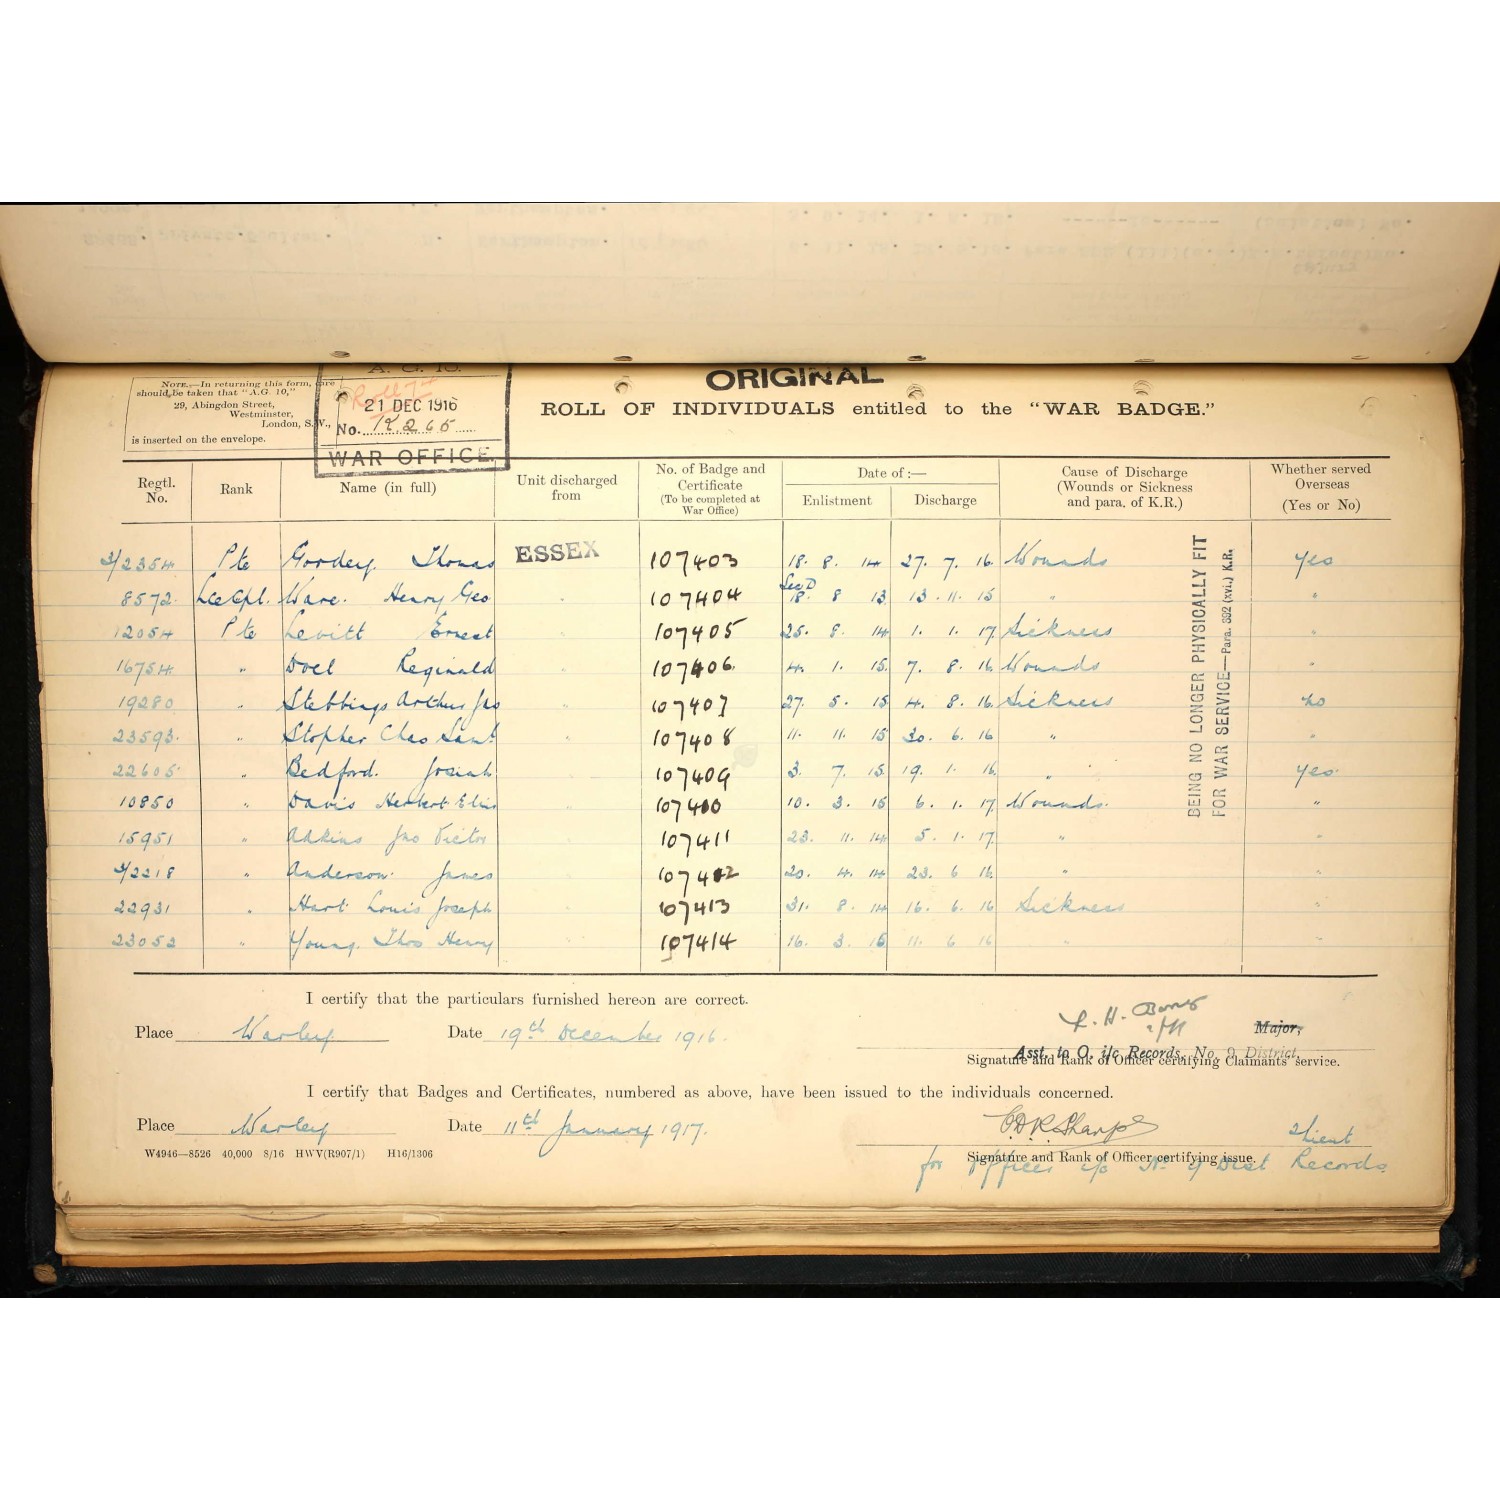 NOTE.—In returning this form, care
should be taken that "A.G. 10,"
29, Abingdon Street,
Westminster,
London, S.W.,
is inserted on the envelope.
A. G. 10.
Roll 74
21 DEC 1916
No.
WAR OFFICE.
ORIGINAL
ROLL OF INDIVIDUALS entitled to the "WAR BADGE."
Regtl. No. Rank Name (in full) Unit discharged from No. of Badge and Certificate (To be completed at War Office) Date of :— Enlistment Discharge Cause of Discharge (Wounds or Sickness and para. of K.R.) Whether served Overseas (Yes or No)
3/2354 Pte Goodey Thomas ESSEX 107403 18. 8. 14 27. 7. 16 Wounds Yes
8572 Lce Cpl. Ware. Henry Geo " 107404 18. 8 13 13. 11. 15 " "
12054 Pte Levitt Ernest " 107405 25. 8. 14 1. 1. 17 Sickness "
16754 " Doel Reginald " 107406 4. 1. 15 7. 8. 16 Wounds "
19280 " Stebbings Arthur Jno " 107407 27. 5. 15 4. 8. 16 Sickness no
23593 " Stopher Chas Saml " 107408 11. 11. 15 30. 6. 16 " "
22605 " Bedford. Josiah " 107409 3. 7. 15 19. 1. 16 " Yes
10850 " Davis Herbert Elis " 107410 10. 3. 15 6. 1. 17 Wounds. "
15951 " Adkins Jno Victor " 107411 23. 11. 14 5. 1. 17 " "
3/2218 " Anderson James " 107412 20. 4. 14 23. 6 16 " "
22931 " Hart Louis Joseph " 107413 31. 8. 14 16. 6. 16 Sickness "
23052 " Young. Thos Henry " 107414 16. 3. 16 11. 6 16 " "
BEING NO LONGER PHYSICALLY FIT
FOR WAR SERVICE—Para. 392 (xvi.) K.R.
I certify that the particulars furnished hereon are correct.
Place Warley Date 19th December 1916.
Major,
Asst. to O. i/c Records, No. 9 District.
Signature and Rank of Officer certifying Claimants' service.
I certify that Badges and Certificates, numbered as above, have been issued to the individuals concerned.
Place Warley Date 11th January 1917.
C.D.R. Sharpe Lieut
Signature and Rank of Officer certifying issue.
for Officer i/c No 9 Dist Records
W4946—8526 40,000 8/16 HWV(R907/1) H16/1306